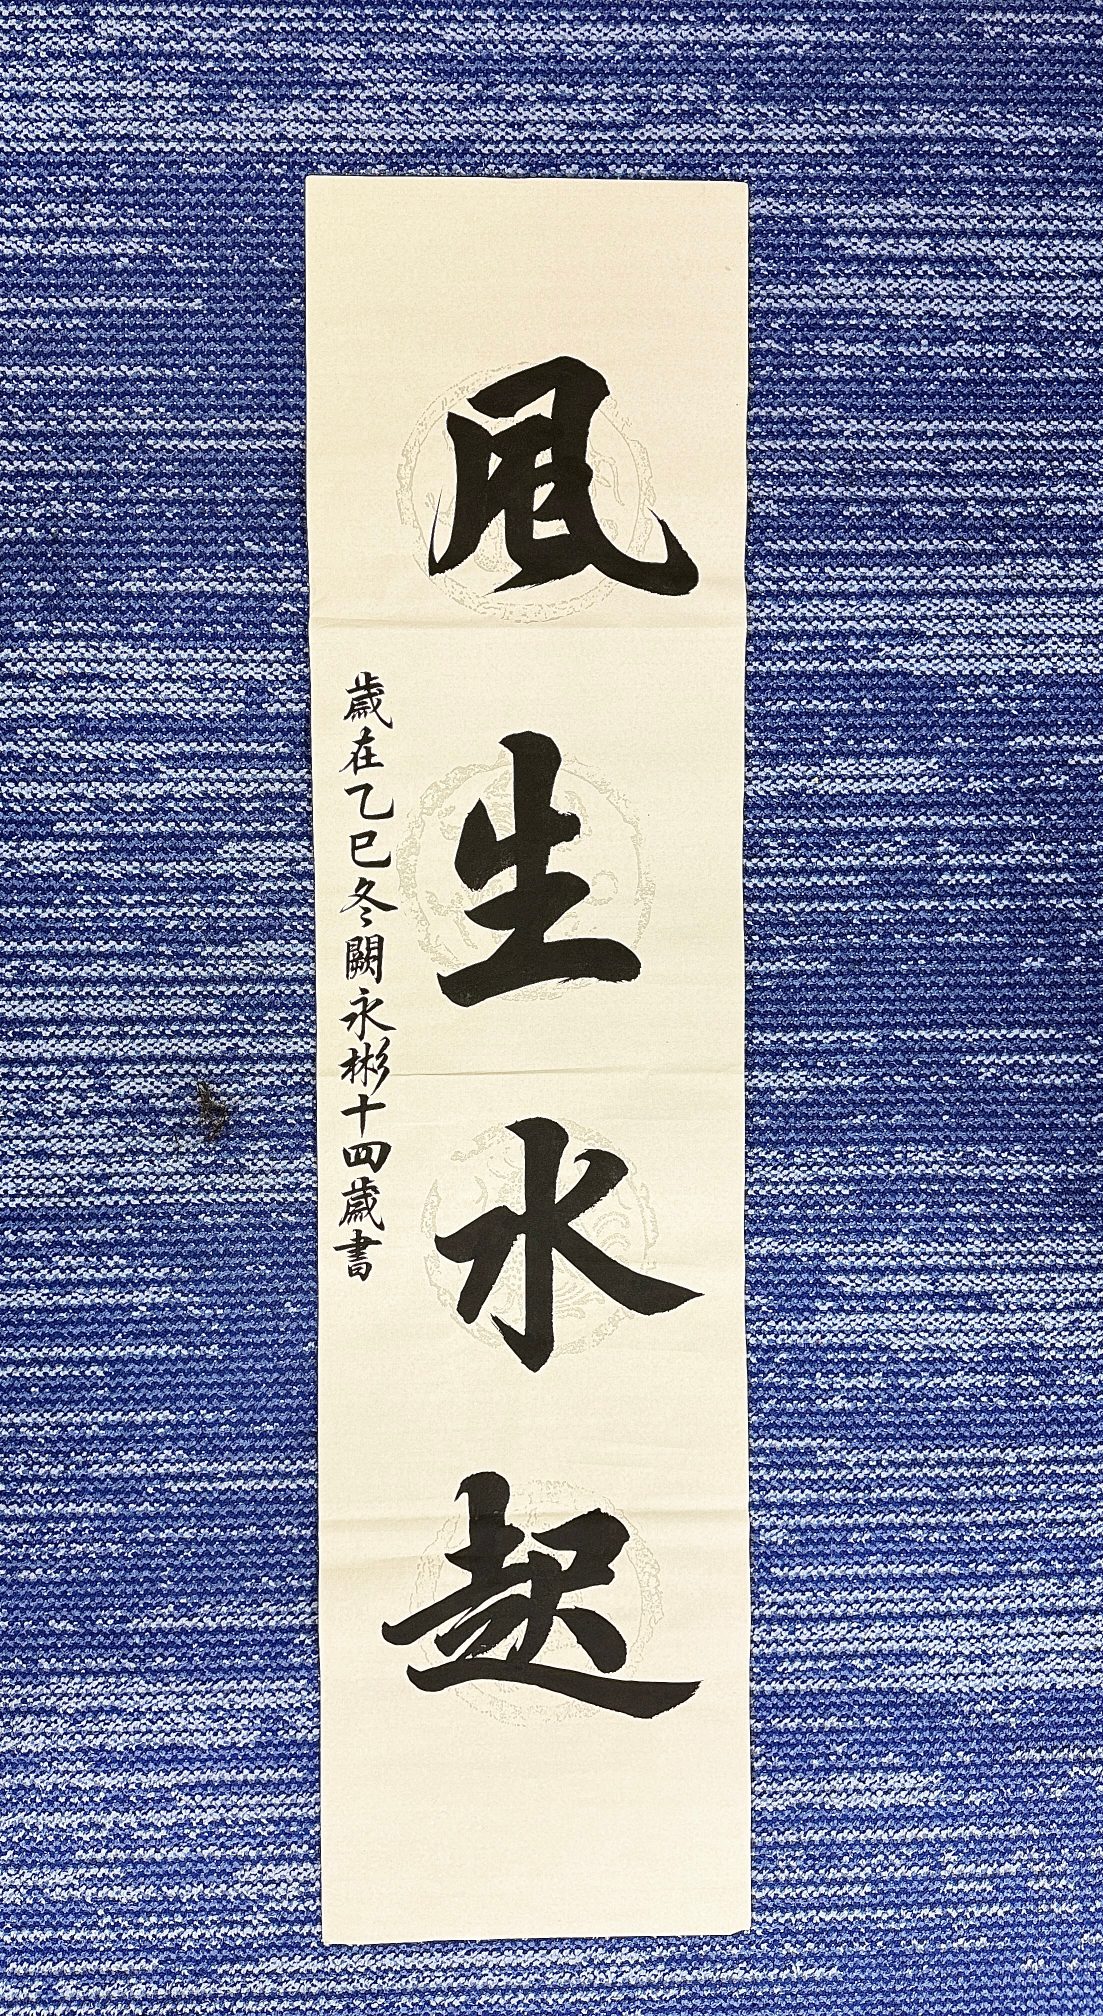 風生水起
歲在乙巳冬闕永彬十四歲書